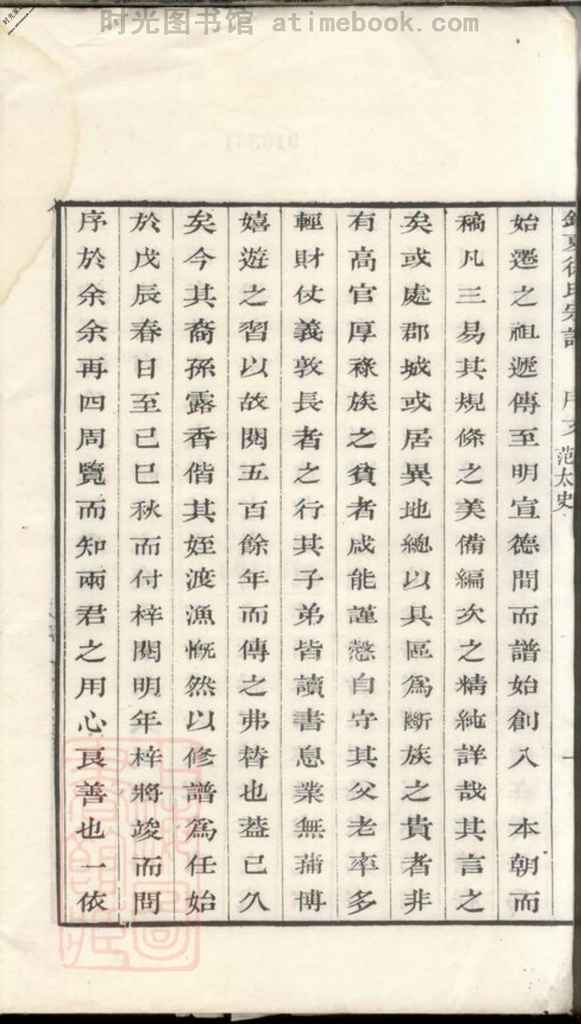 时光图书馆 atimebook.com
徐氏宗譜 序文 范太史 一
始遷之祖遞傳至明宣德間而譜始創入 本朝而
稿凡三易其規條之美備編次之精純詳哉其言之
矣或處郡城或居異地總以具區為斷族之貴者非
有高官厚祿族之貧者咸能謹慤自守其父老率多
輕財仗義敦長者之行其子弟皆讀書息業無蒱博
嬉遊之習以故閱五百餘年而傳之弗替也葢已久
矣今其裔孫露香偕其姪渡漁慨然以修譜為任始
於戊辰春日至已巳秋而付梓閱明年梓將竣而問
序於余余再四周覽而知兩君之用心良善也一依